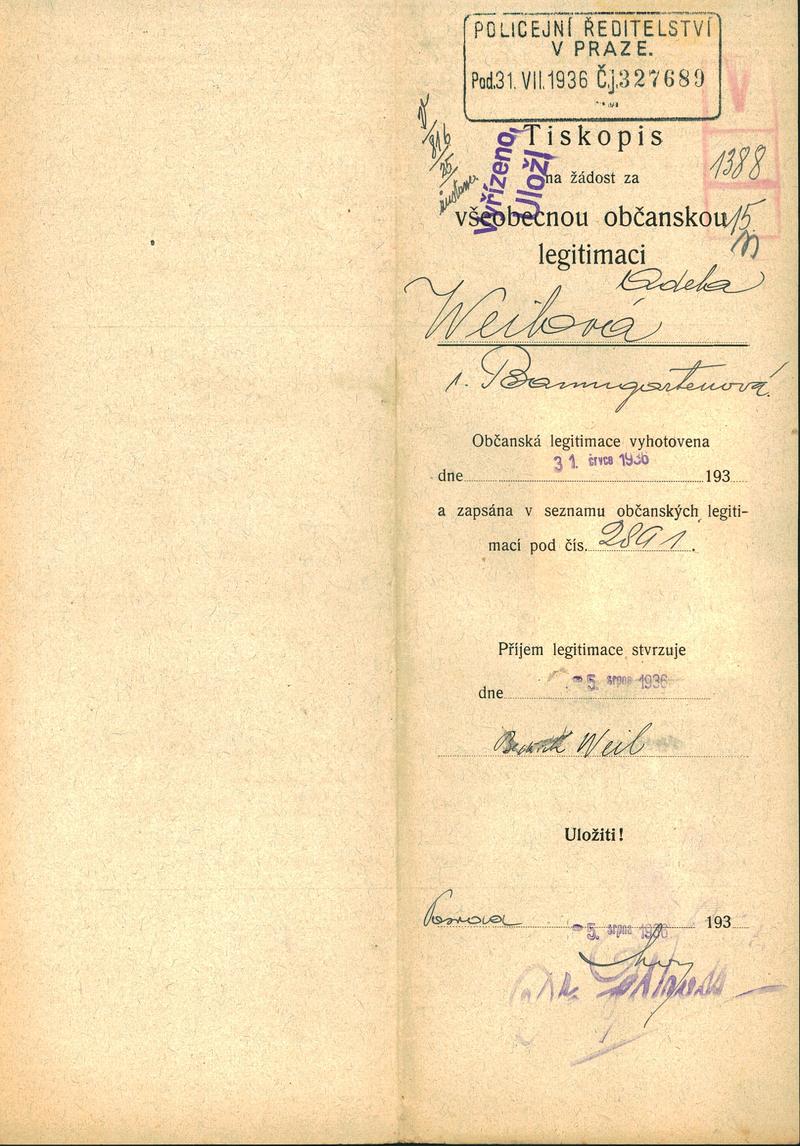 POLICEJNÍ ŘEDITELSTVÍ
V PRAZE.
Pod. 31. VII. 1936 Čj. 327689
V
816
25
Tiskopis
Vyřízeno,
Uložl
na žádost za
1388
všeobecnou občanskou
15
legitimaci
Adela
Weilová
r. Baumgartenová
Občanská legitimace vyhotovena
31. črvce 1936
dne 193
a zapsána v seznamu občanských legiti-
mací pod čís. 2891.
Příjem legitimace stvrzuje
dne -5. srpna 1936
Weil
Uložiti!
-5. srpna 1936 193